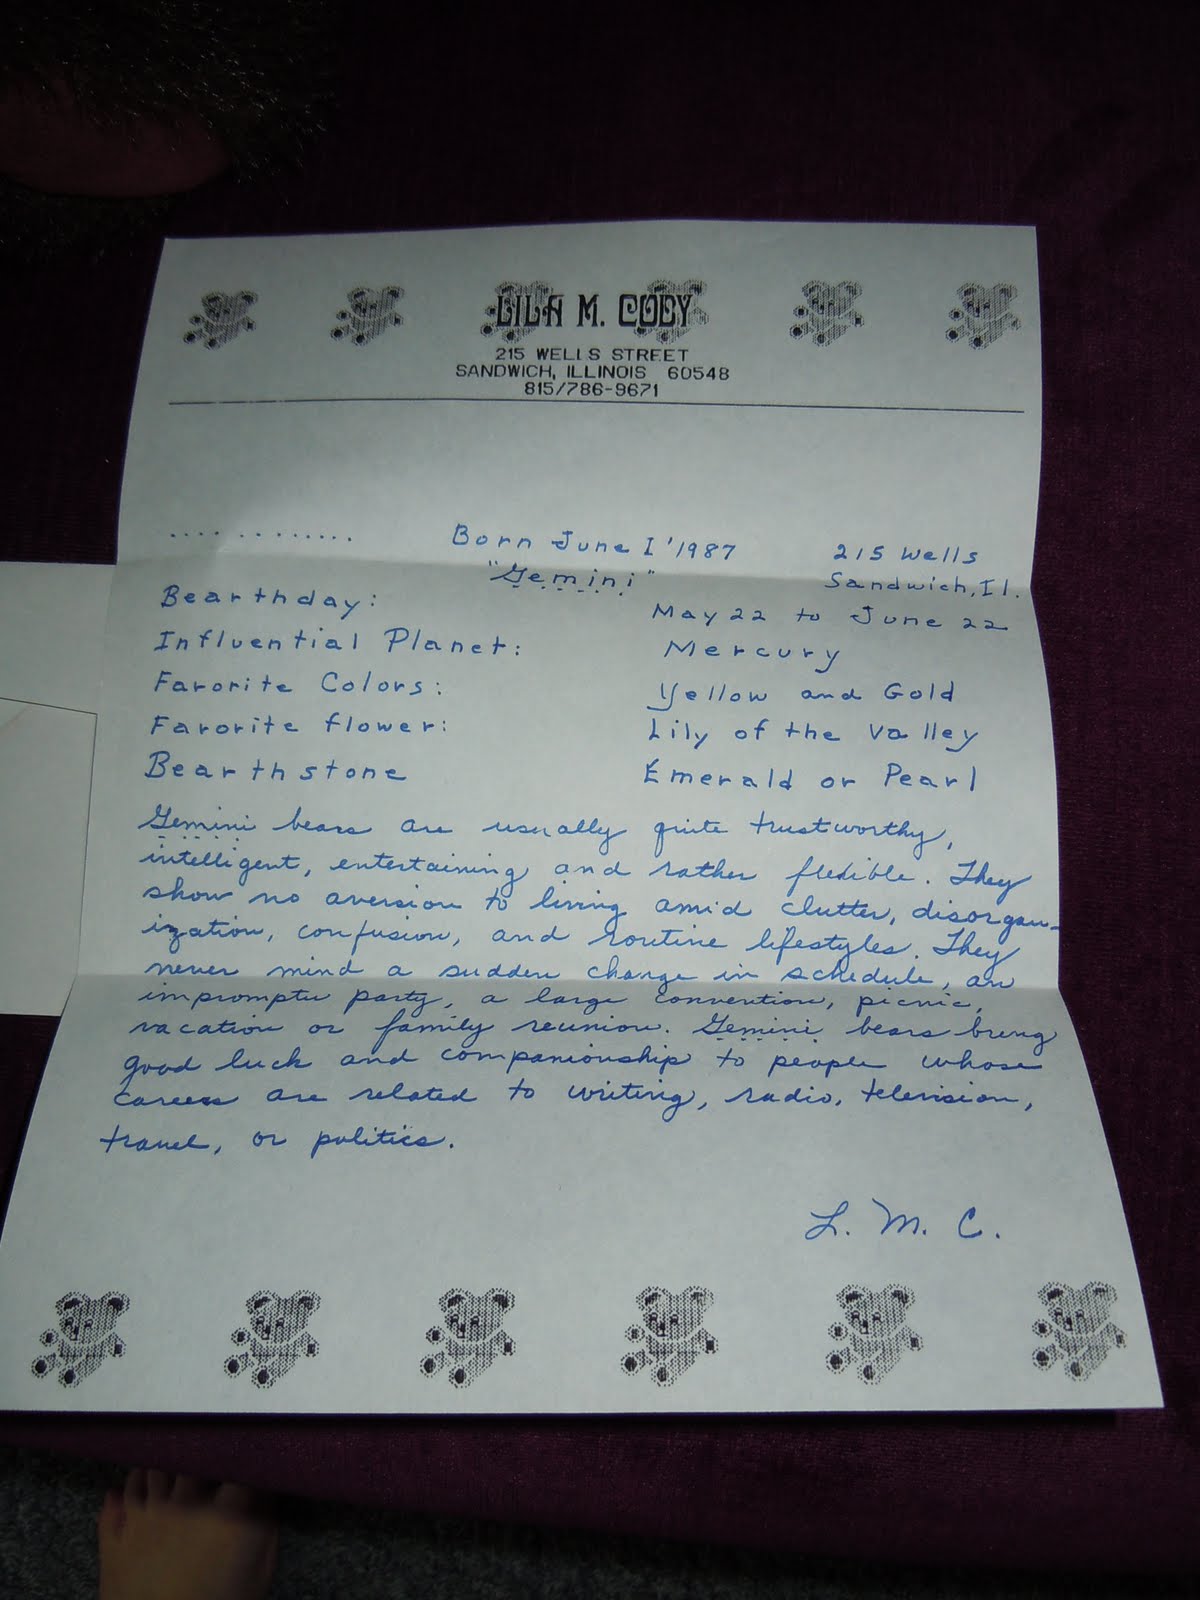 LILA M. COEY
215 WELLS STREET
SANDWICH, ILLINOIS 60548
815/786-9671
............. Born June I '1987 215 Wells
"Gemini" Sandwich, Il.
Bearthday: May 22 to June 22
Influential Planet: Mercury
Favorite Colors: Yellow and Gold
Favorite flower: Lily of the Valley
Bearthstone Emerald or Pearl
Gemini bears are usually quite trustworthy,
intelligent, entertaining and rather flexible. They
show no aversion to living amid clutter, disorgan-
ization, confusion, and routine lifestyles. They
never mind a sudden change in schedule, an
impromptu party, a large convention, picnic,
vacation or family reunion. Gemini bears bring
good luck and companionship to people whose
careers are related to writing, radio, television,
travel, or politics.
L. M. C.